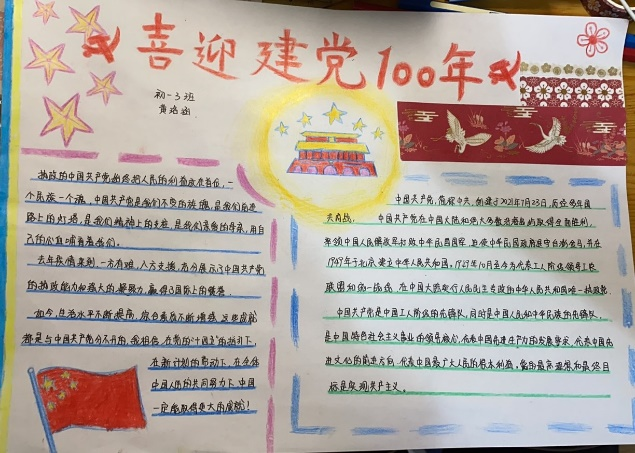 喜迎建党100年
初一3班
黄洛涵
执政的中国共产党始终把人民的利益放在首位,一
个民族一个魂,中国共产党是我们不变的族魂,是我们前进
路上的灯塔,是我们精神上的支柱,是我们亲爱的母亲,用自
己的心血哺育着我们。
去年疫情来到一方有难,八方支援,充分展示了中国共产党
的执政能力和强大的凝聚力,赢得了国际上的赞誉。
如今,生活水平不断提高,综合素质不断增强,这些成就
都是与中国共产党分不开的,我相信,在党的“十四五”的指引下,
在新计划的带动下,在全体
中国人民的共同努力下,中国
一定能取得更大的成就!
中国共产党,简称中共,创建于2021年7月23日,历经多年国
共内战,中国共产党在中国大陆和绝大多数沿海岛屿取得全面胜利,
率领中国人民解放军打败中华民国国军,迫使中华民国政府退守台澎金马,并在
1949年于北京建立中华人民共和国,1949年10月至今为代表工人阶级领导工农
联盟和统一战线,在中国大陆实行人民民主专政的中华人民共和国唯一执政党
中国共产党是中国工人阶级的先锋队,同时是中国人民和中华民族的先锋队,
是中国特色社会主义事业的领导核心,代表中国先进生产力的发展要求,代表中国先
进文化的前进方向,代表中国最广大人民的根本利益,党的最高理想和最终目
标是实现共产主义。